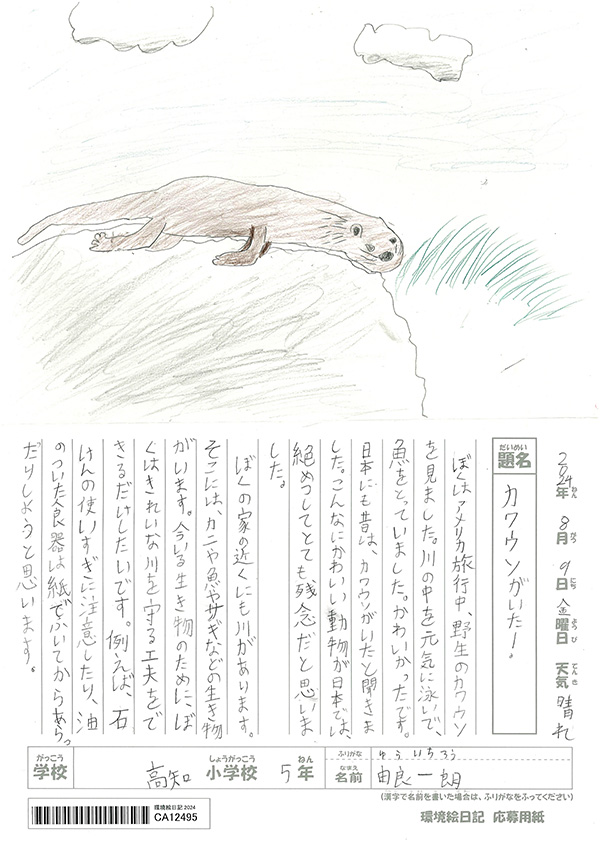 2024年ねん 8月がつ 9日にち 金曜日ようび 天気てんき 晴れ
だいめい
題名
カワウソがいた!
ぼくはアメリカ旅行中、野生のカワウソ
を見ました。川の中を元気に泳いで、
魚をとっていました。かわいかったです。
日本にも昔は、カワウソがいたと聞きま
した。こんなにかわいい動物が日本では、
絶めつしてとても残念だと思いま
した。
ぼくの家の近くにも川があります。
そこには、カニや魚やサギなどの生き物
がいます。今いる生き物のために、ぼ
くはきれいな川を守る工夫をで
きるだけしたいです。例えば、石
けんの使いすぎに注意したり、油
のついた食器は紙でふいてからあらっ
だりしようと思います。
がっこう しょうがっこう ねん ふりがな ゆう いちろう
学校 高知 小学校 5年 なまえ 名前 由良一朗
(漢字で名前を書いた場合は、ふりがなをふってください)
環境絵日記 2024
CA12495
環境絵日記 応募用紙